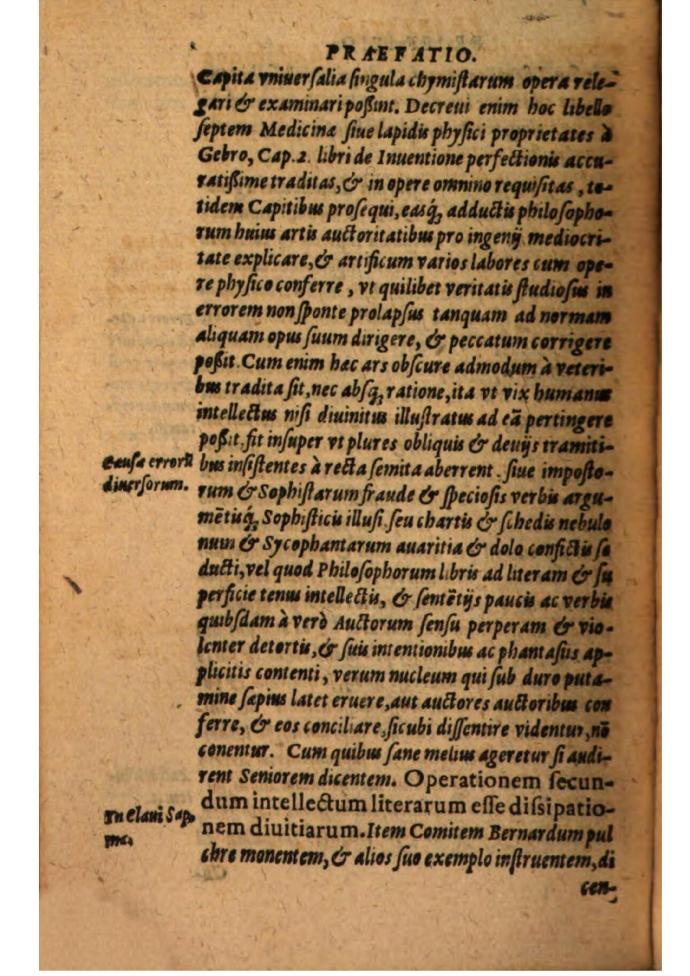 PRÆFATIO.
Capita vniuersalia singula chymistarum opera rele-
gari & examinari possint. Decreui enim hoc libello
septem Medicinæ siue lapidis physici proprietates à
Gebro, Cap.2. libri de Inuentione perfectionis accu-
ratissime traditas, & in opere omnino requisitas, to-
tidem Capitibus prosequi, easq́; adductis philosopho-
rum huius artis auctoritatibus pro ingenij mediocri-
tate explicare, & artificum varios labores cum ope-
re physico conferre, vt quilibet veritatis studiosus in
errorem non sponte prolapsus tanquam ad normam
aliquam opus suum dirigere, & peccatum corrigere
possit. Cum enim hæc ars obscure admodum à veteri-
bus tradita sit, nec absq́; ratione, ita vt vix humanus
intellectus nisi diuinitus illustratus ad eã pertingere
possit, fit insuper vt plures obliquis & deuijs tramiti-
Causa errorũ
diuersorum.
bus insistentes à recta semita aberrent. siue imposto-
rum & Sophistarum fraude & speciosis verbis argu-
mētisq́; Sophisticis illusi, seu chartis & schedis nebulo
num & Sycophantarum auaritia & dolo confictis se
ducti, vel quod Philosophorum libris ad literam & su
perficie tenus intellectis, & sentētijs paucis ac verbis
quibsdam à verò Auctorum sensu perperam & vio-
lenter detortis, & suis intentionibus ac phantasiis ap-
plicitis contenti, verum nucleum qui sub duro puta-
mine sæpius latet eruere, aut auctores auctoribus con
ferre, & eos conciliare, sicubi dissentire videntur, nō
conentur. Cum quibus sane melius ageretur si audi-
rent Seniorem dicentem. Operationem secun-
dum intellectum literarum esse dissipatio-
In claui Sap.
ma.
nem diuitiarum. Item Comitem Bernardum pul
chre monentem, & alios suo exemplo instruentem, di
cen-